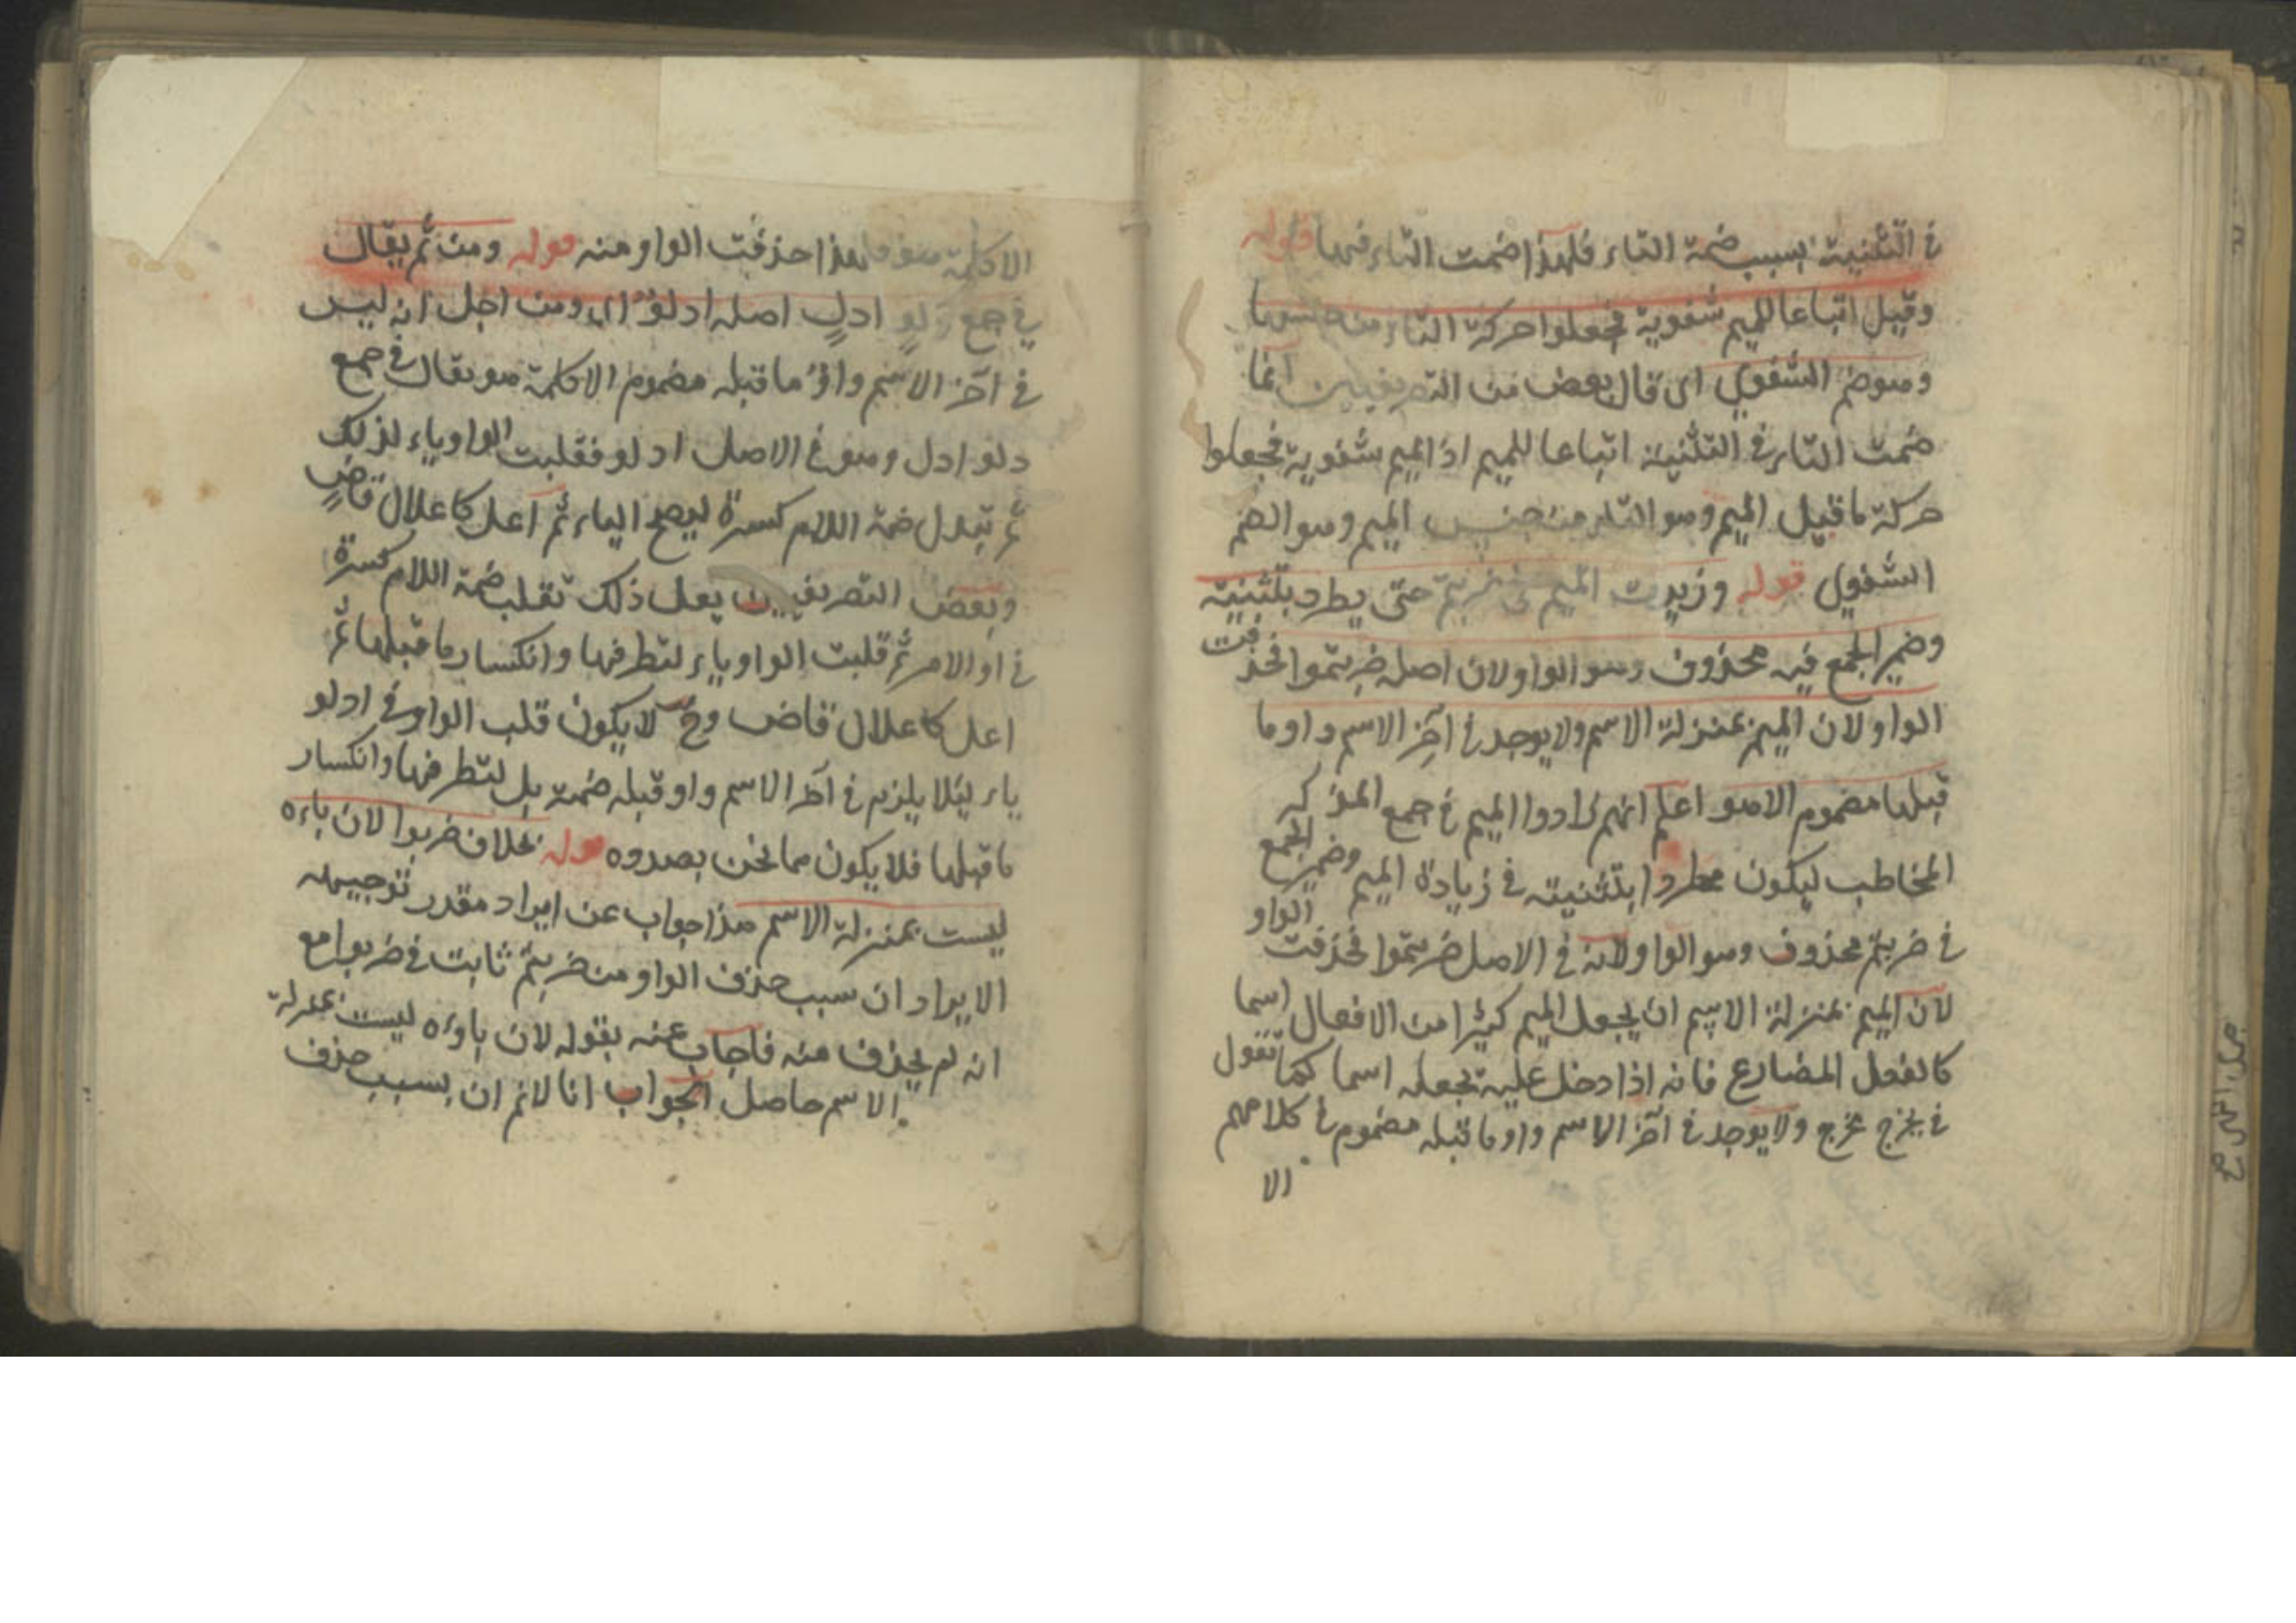 في التثنية بسبب ضمة التاء فلهذا ضمت التاء فيها قوله
وقيل اتباعا للميم شفوية فجعلوا حركة التاء من جنسها
وهو ضم الشفوي اى قال بعض من التصريفيين انما
ضمت التاء في التثنية اتباعا للميم اذ الميم شفوية فجعلوا
حركة ما قبل الميم وهو التاء من جنس الميم وهو الضم
الشفوي قوله وزيدت الميم في ضربتم حتى يطرد بتثنيته
وضمير الجمع فيه محذوف وهو الواو لان اصله ضربتموا فحذفت
الواو لان الميم بمنزلة الاسم ولا يوجد في آخر الاسم واو وما
قبلها مضموم الا هو اعلم انهم زادوا الميم في جمع المذكر
المخاطب ليكون مطردا بتثنيته في زيادة الميم وضمير الجمع
في ضربتم محذوف وهو الواو لانه في الاصل ضربتموا فحذفت الواو
لان الميم بمنزلة الاسم ان يجعل الميم كثيرا من الافعال اسما
كالفعل المضارع فانه اذا دخل عليه يجعله اسما كما تقول
في يخرج مخرج ولا يوجد في آخر الاسم واو ما قبله مضموم في كلامهم
الا
الا كلمة هو فلهذا حذفت الواو منه قوله ومن ثم يقال
في جمع دلو ادل اصله ادلو اى ومن اجل انه ليس
في آخر الاسم واو ما قبله مضموم الا كلمة هو يقال في جمع
دلو ادل وهو في الاصل ادلو فقلبت الواو ياء لذلك
ثم تبدل ضمة اللام كسرة ليصح الياء ثم اعل كاعلال قاض
وبعض التصريفيين يعل ذلك تقلب ضمة اللام كسرة
في او الامر ثم قلبت الواو ياء لتطرفها وانكسار ما قبلها ثم
اعل كاعلال قاض وح لا يكون قلب الواو في ادلو
ياء ليئلا يلزم في آخر الاسم واو قبله ضمة بل لتطرفها وانكسار
ما قبلها فلا يكون مما نحن بصدوه قوله بخلاف ضربوا لان باءه
ليست بمنزلة الاسم هذا جواب عن ايراد مقدر توجيهه
الايراد ان سبب حذف الواو من ضربتم ثابت في ضربوا مع
انه لم يحذف منه فاجاب عنه بقوله لان باوءه ليست بمنزلة
الاسم حاصل الجواب انا لانم ان بسبب حذف